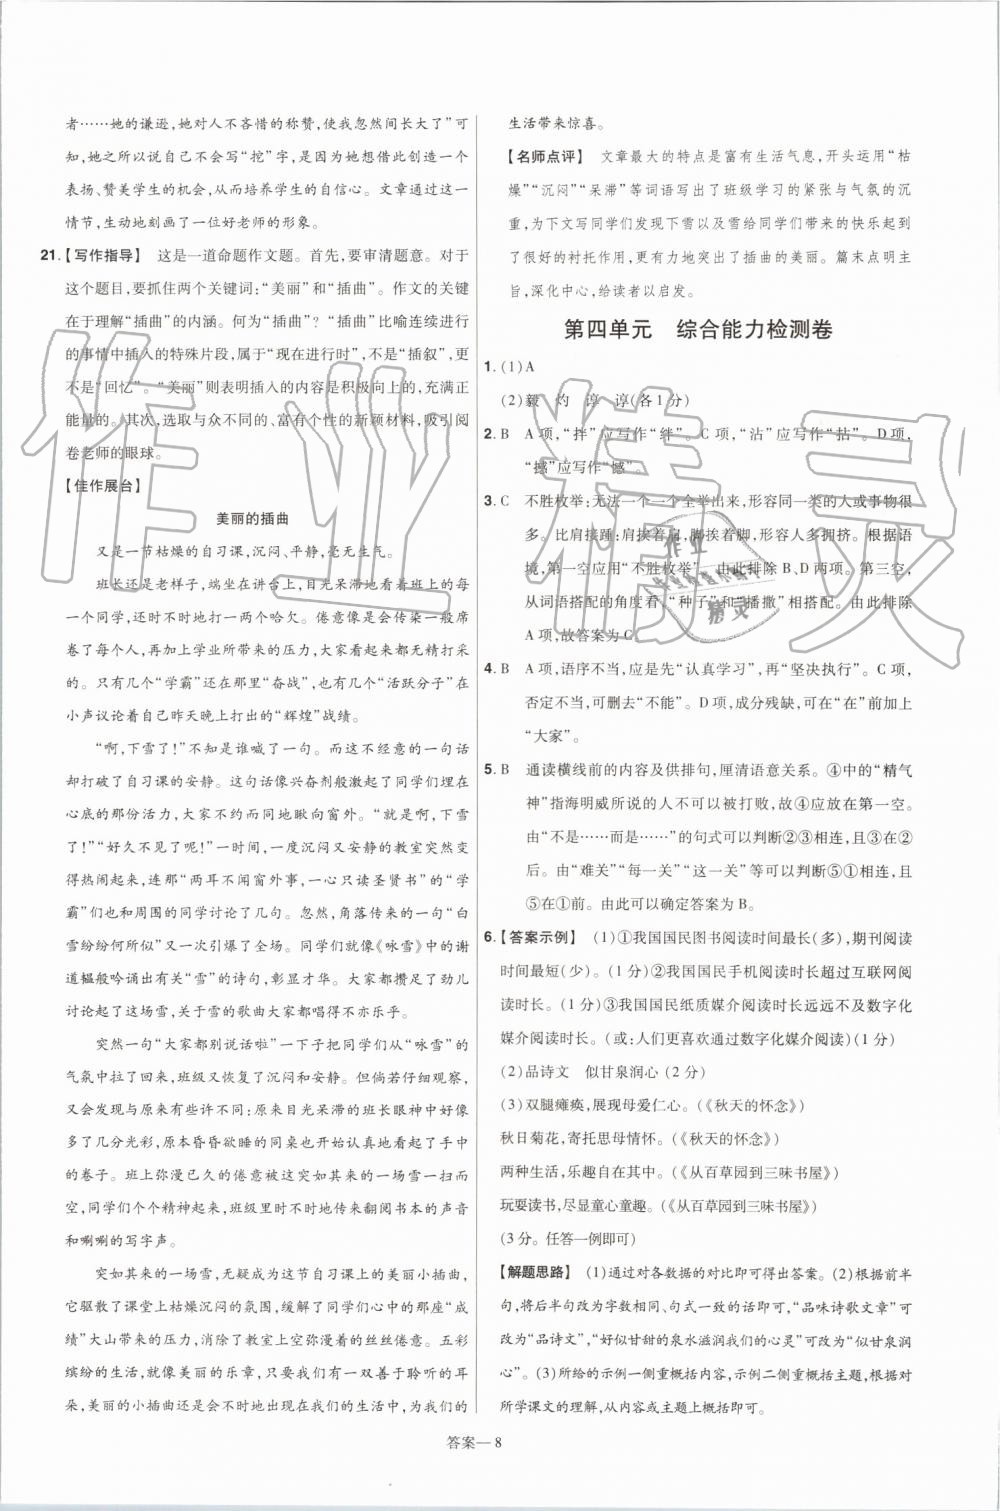 者……她的谦逊,她对人不吝惜的称赞,使我忽然间长大了”可
知,她之所以说自己不会写“挖”字,是想试图借此创造一个
表扬、赞美学生的机会,从而培养学生的自信心。文章通过这一
情节,生动地刻画了一位好老师的形象。
21.【写作指导】 这是一道命题作文题。首先,要审清题意。对于
这个题目,要抓住两个关键词:“美丽”和“插曲”。作文的关键
在于理解“插曲”的内涵。何为“插曲”?“插曲”比喻连续进行
的事情中插入的特殊片段,属于“现在进行时”,不是“插叙”,更
不是“回忆”。“美丽”则表明插入的内容是积极向上的,充满正
能量的。其次,选取与众不同的、富有个性的新颖材料,吸引阅
卷老师的眼球。
【佳作展台】
美丽的插曲
又是一节枯燥的自习课,沉闷、平静,毫无生气。
班长还是老样子,端坐在讲台上,目光呆滞地看着班上的同
学,不时地打一两个哈欠。倦意像是会传染一般席
卷了每一个人,再加上学业所带来的压力,大家看都无精打采
的。只有几个“学霸”还在那里“奋战”,也有几个“活跃分子”在
小声议论着自己昨天晚上打出的“辉煌”战绩。
“啊,下雪了!”不知是谁喊了一句。而这不经意的一句话
却打破了自习课的安静。这句话像兴奋剂般激起了同学们埋在
心底的那份活力,大家都不时地瞅向窗外。“啊,下雪
了!”“好久不见了雪!”一时间,一度沉闷又安静的教室突然变
得热闹起来,连那“两耳不闻窗外事,一心只读圣贤书”的“学
霸”们也和周围的同学讨论了几句。忽然,角落传来的一句“白
雪纷纷何所似”又一次引爆了全场。同学们就像《咏雪》中的谢
道韫般吟诵出有关“雪”的诗句,彰显才华。大家都攒足了劲儿
讨论着这场雪,关于雪的歌曲大家都唱得不亦乐乎。
突然一句“大家都别说话啦”一下子把同学们从“咏雪”的
气氛中拉了回来,班级又恢复了沉闷和安静。但倘若仔细观察,
又会发现与原来有些许不同:原来目光呆滞的班长眼神中好像
多了几分光彩,原本昏昏欲睡的同桌也开始认真地看着手中
的卷子。班上弥漫已久的倦意被这突如其来的一场雪一扫而
空,同学们个个精神起来,班级里时不时地传来翻阅书本的声音
和唰唰的写字声。
突如其来的一场雪,无疑成为这节自习课上的美丽小插曲,
它驱散了课堂上枯燥沉闷的氛围,缓解了同学们心中的那座“成
绩”大山带来的压力,消除了教室上空弥漫着的丝丝倦意。五彩
缤纷的生活,就像美丽的乐章,只要我们有一双善于聆听的耳
朵,美丽的小插曲还是会不时地出现在我们的生活中,为我们的
生活带来惊喜。
【名师点评】 文章最大的特点是富有生活气息,开头运用“枯
燥”“沉闷”“呆滞”等词语写出了班级学习的紧张与气氛的沉
重,为下文写同学们发现下雪以及雪给同学们带来的快乐起到
了很好的衬托作用,更有力地突出了插曲的美丽。篇末点明主
旨,深化中心,给读者以启发。
第四单元 综合能力检测卷
1.(1)A
(2)毅 灼 谆 谆(各1分)
2.B A项,“拌”应写作“绊”。C项,“沾”应写作“拈”。D项,
“撼”应写作“憾”。
3.C 不胜枚举:无法一个一个全举出来,形容同一类的人或事物很
多。比肩接踵:肩挨着肩,脚挨着脚,形容人多拥挤。根据语
境,第一空应用“不胜枚举”,由此排除B、D两项。第三空,
从词语搭配的角度看,“种子”和“播撒”相搭配。由此排除
A项,故答案为C。
4.B A项,语序不当,应是先“认真学习”,再“坚决执行”。C项,
否定不当,可删去“不能”。D项,成分残缺,可在“在”前加上
“大家”。
5.B 通读横线前的内容及供排句,厘清语意关系。④中的“精气
神”指海明威所说的人不可以被打败,故④应放在第一空。
由“不是……而是……”的句式可以判断②③相连,且③在②
后。由“难关”“每一关”“这一关”等可以判断⑤①相连,且
⑤在①前。由此可以确定答案为B。
6.【答案示例】 (1)①我国国民图书阅读时间最长(多),期刊阅读
时间最短(少)。(1分)②我国国民手机阅读时长超过互联网阅
读时长。(1分)③我国国民纸质媒介阅读时长远远不及数字化
媒介阅读时长。(或:人们更喜欢通过数字化媒介阅读)(1分)
(2)品诗文 似甘泉润心(2分)
(3)双腿瘫痪,展现母爱仁心。(《秋天的怀念》)
秋日菊花,寄托思母情怀。(《秋天的怀念》)
两种生活,乐趣自在其中。(《从百草园到三味书屋》)
玩耍读书,尽显童心童趣。(《从百草园到三味书屋》)
(3分。任答一例即可)
【解题思路】 (1)通过对各数据的对比即可得出答案。(2)根据前半
句,将后半句改为字数相同、句式一致的话即可,“品味诗歌文章”可
改为“品诗文”,“好似甘甜的泉水滋润我们的心灵”可改为“似甘泉润
心”。(3)所给的示例一侧重概括内容,示例二侧重概括主题,根据对
所学课文的理解,从内容或主题上概括即可。
答案—8
作业精灵
作业
精灵